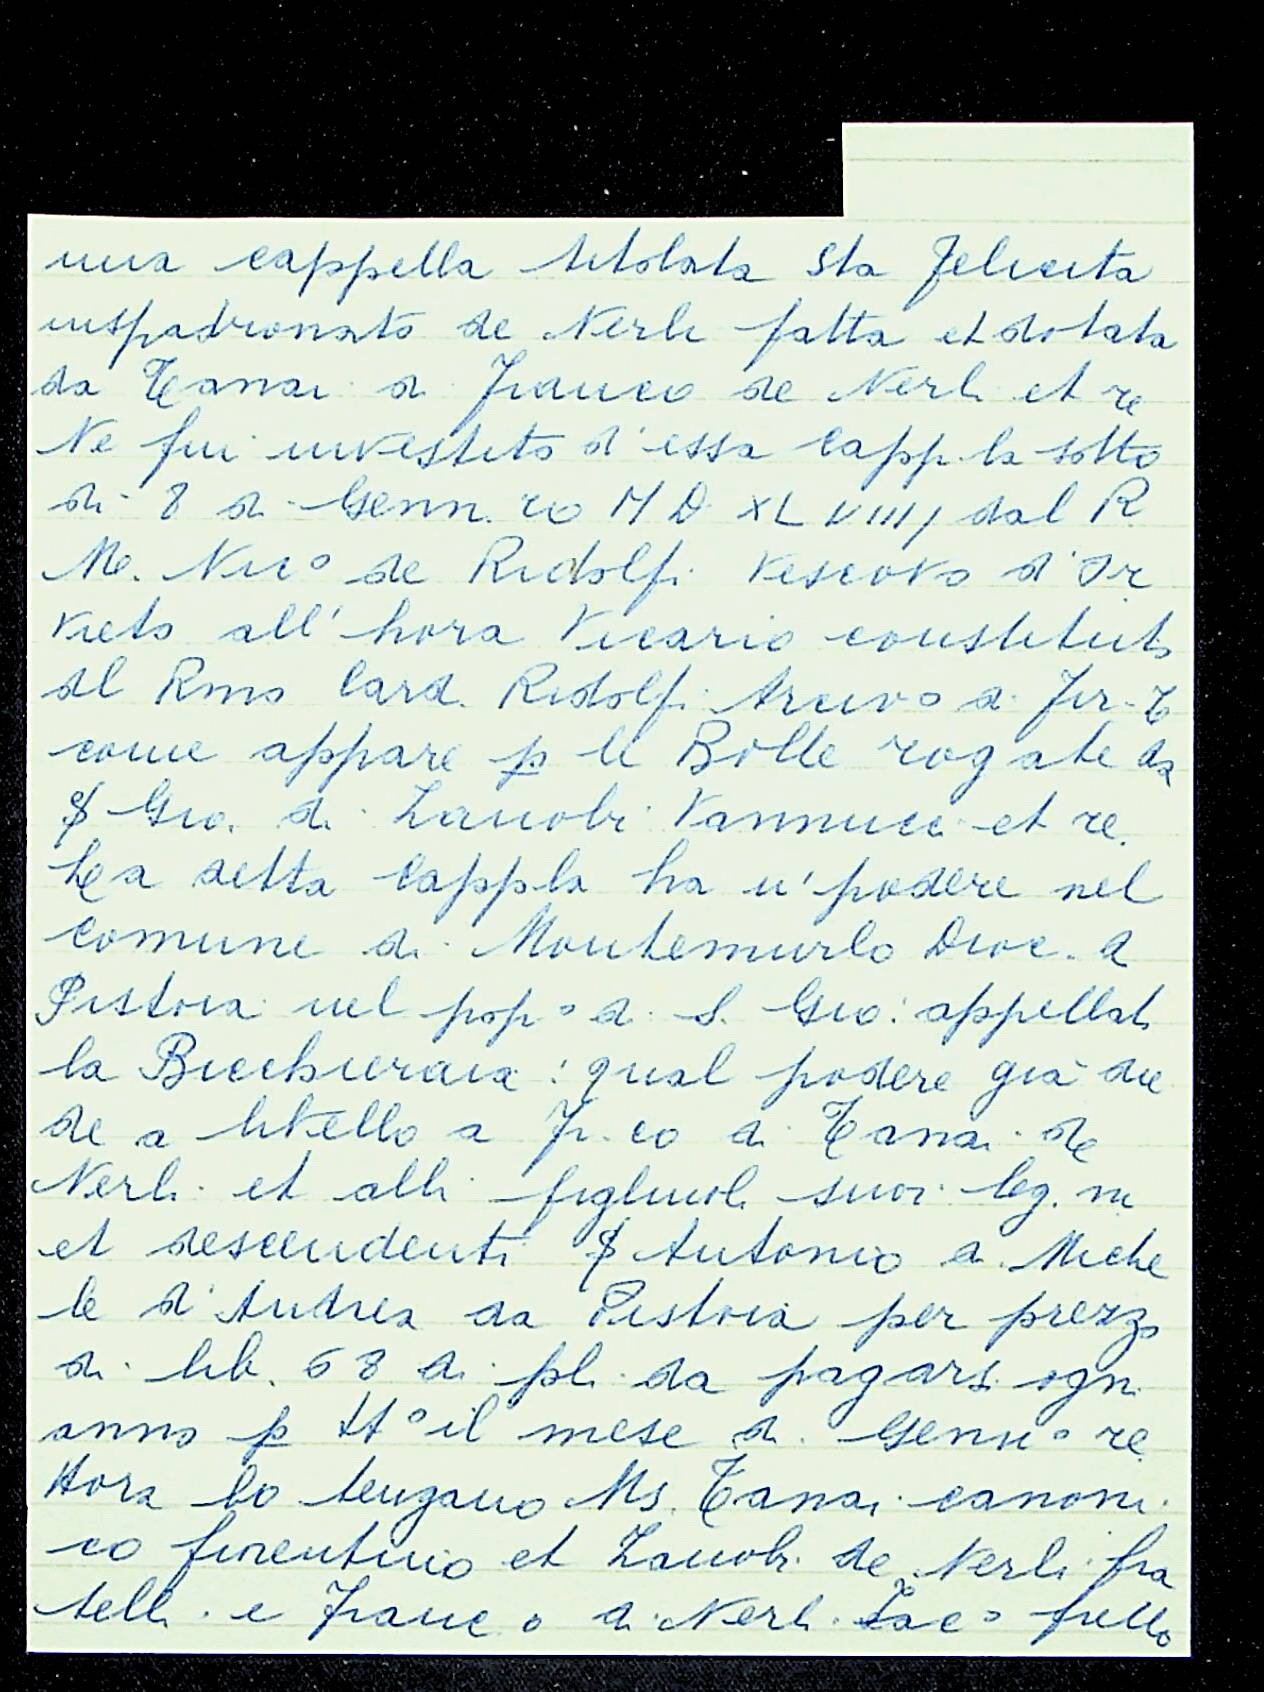 una cappella titolata Sta Felicita
iuspadronato de Nerli fatta et dotata
da Tanai di Franco de Nerli et re
Ne fui investito d'essa Capp.la sotto
di 8 di Genn.ro MDXLVIIII dal R
Me. Nico de Ridolfi Vescovo d'Or
vieto all'hora Vicario constituito
dal Rmo Card. Ridolfi Arcivo di Fir.
come appare p le Bolle rogate da
Gio. di Zanobi Vannucci et re.
La detta Cappla ha u' podere nel
comune di Montemurlo Dioc. di
Pistoia nel popo di S. Gio: appellato
la Bicchieraia: qual podere già die
de a livello a Fr.co di Tanai de
Nerli et alli figliuoli suoi leg.mi
et descendenti Antonio di Miche
le d'Andrea da Pistoia per prezzo
di lib. 68 di pli da pagarsi ogni
anno p tto il mese di Gennio re
Hora lo tengano Ms. Tanai canoni
co fiorentino et Zanobi de Nerli fra
telli e Franco di Nerli Iaco frello